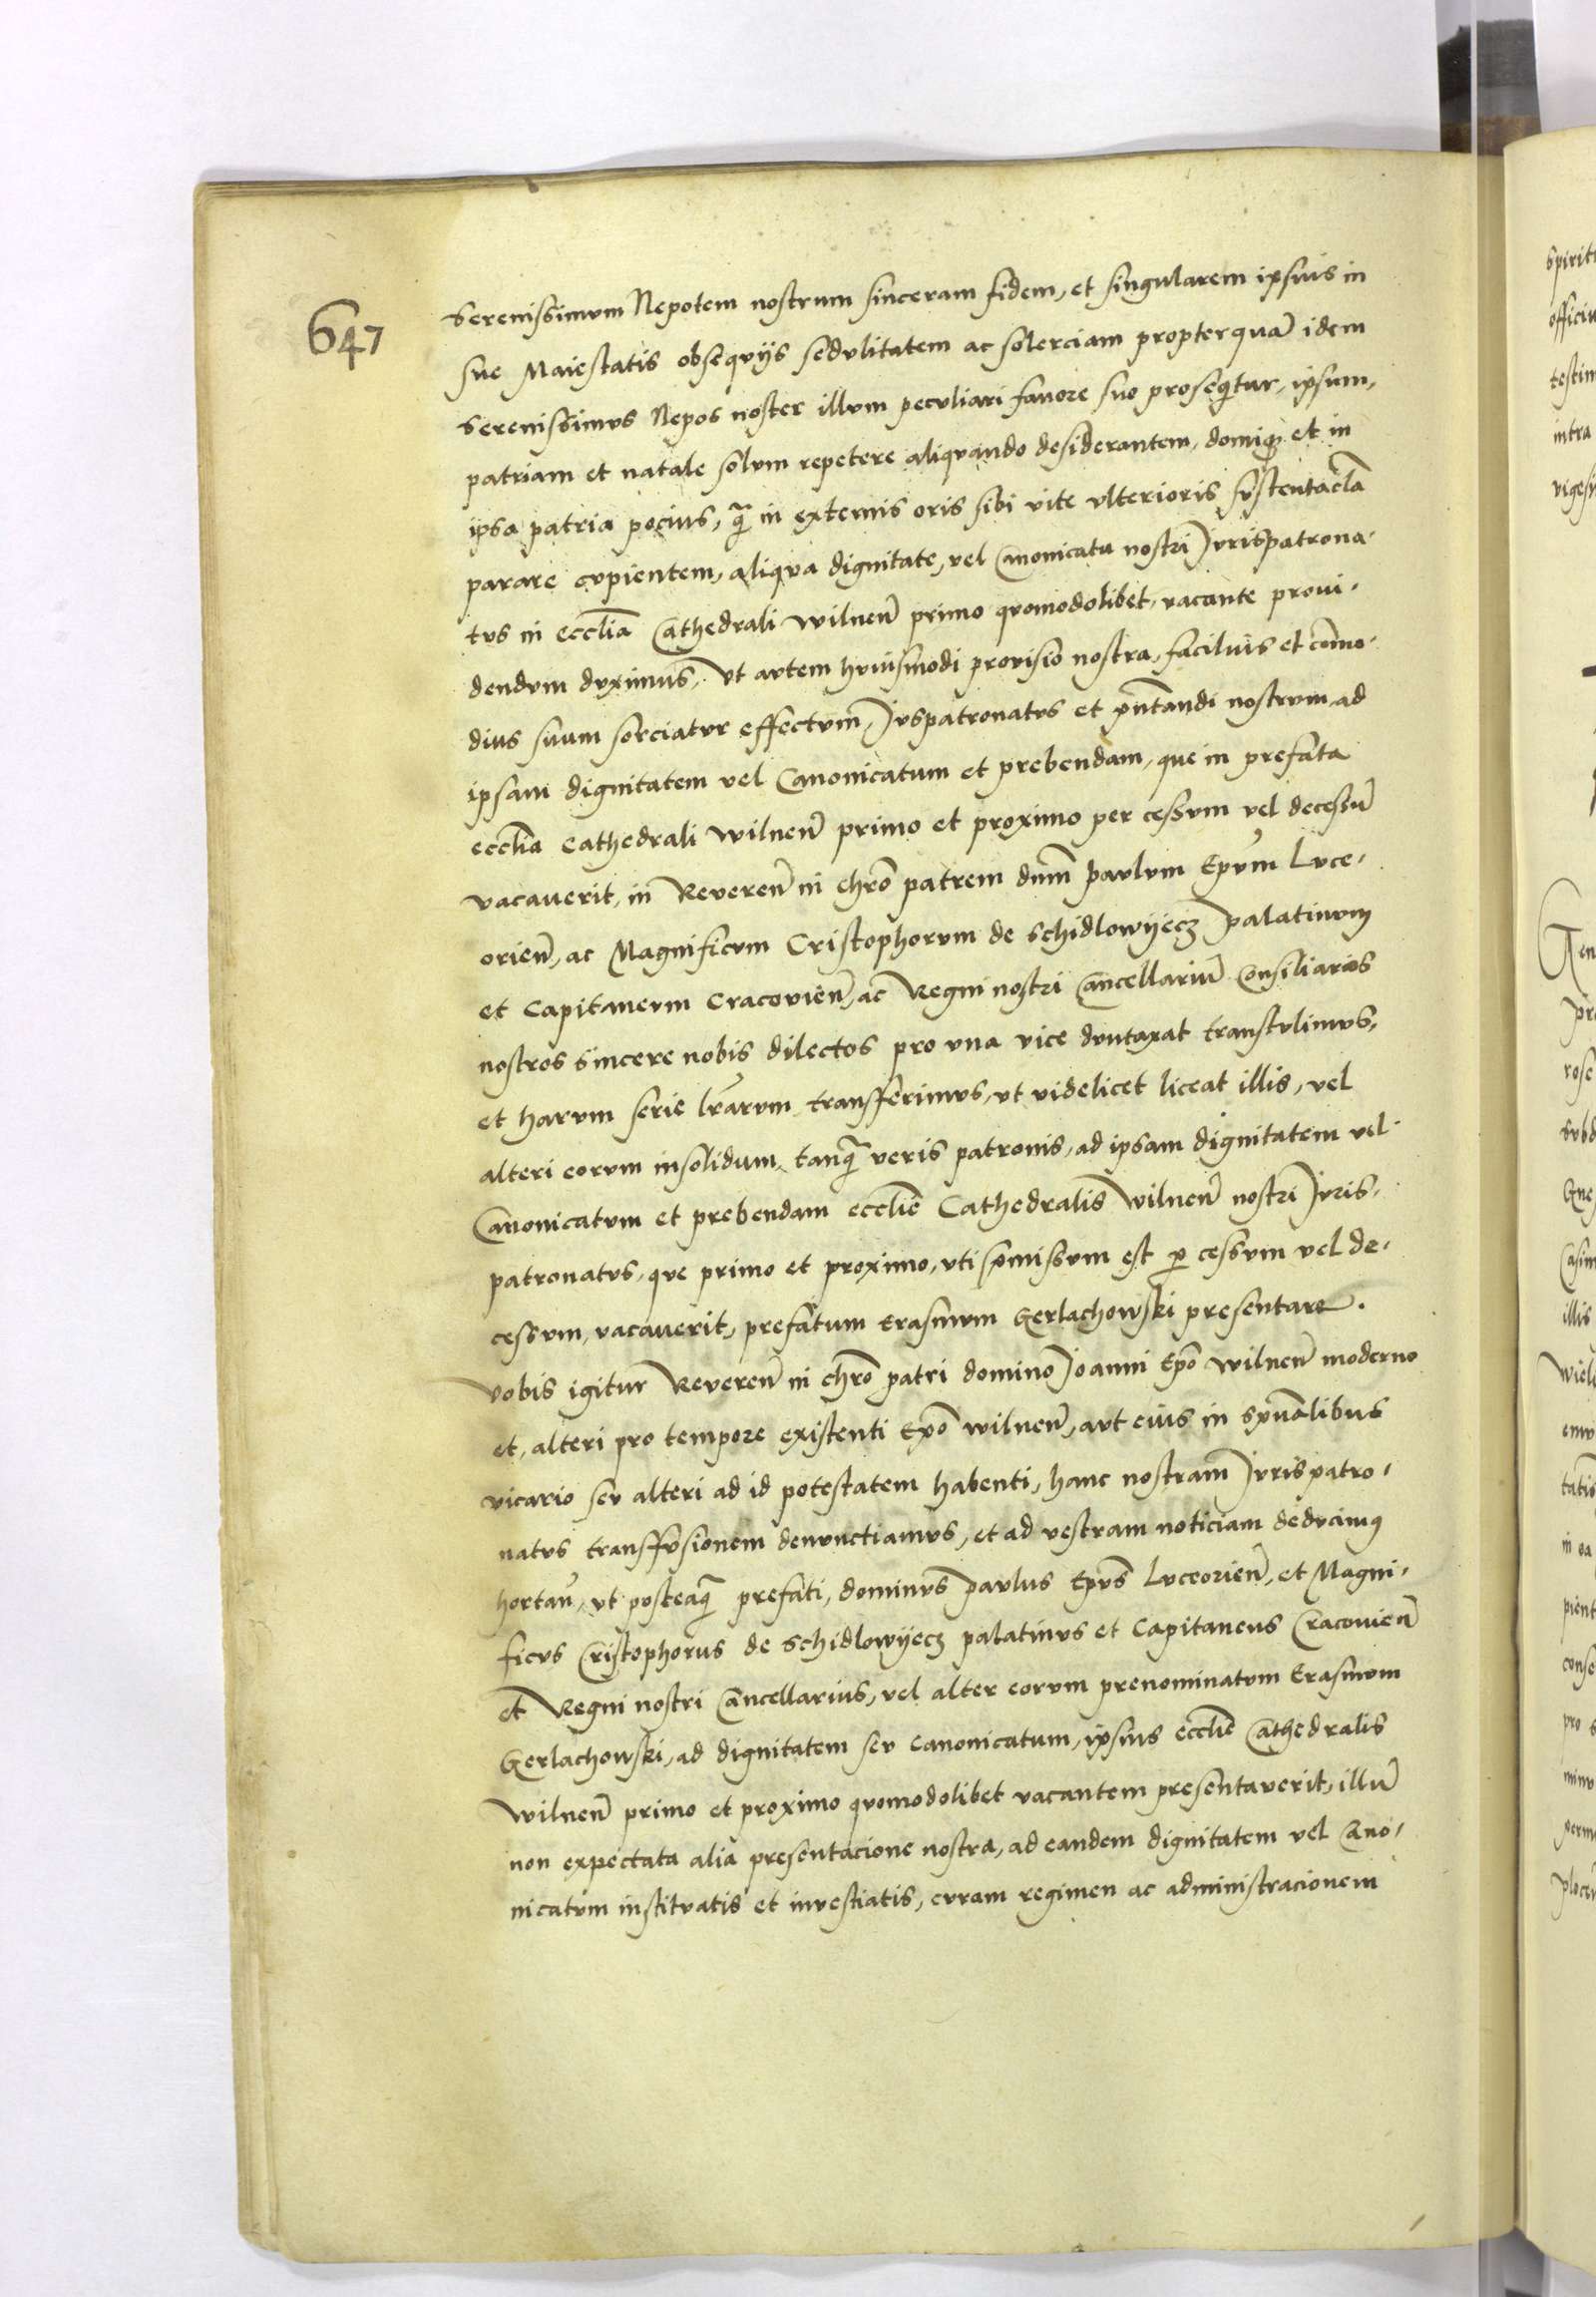 647
Serenissimum Nepotem nostrum sinceram fidem, et singularem ipsius in
sue Maiestatis obsequijs sedulitatem ac solerciam propter quā idem
Serenissimus Nepos noster illum peculiari favore suo proseqitur, ipsum,
patriam et natale solum repetere aliquando desiderantem, domiq3 et in
ipsa patria pocius, q̄ in externis oris sibi vite ulterioris sustentacl̄a
parare cupientem, aliqua dignitate, vel Canonicatu nostri Jurispatrona-
tus in eccl̄ia Cathedrali wilnen̄ primo quomodolibet, vacante provi-
dendum duximus, Vt autem huiusmodi provisio nostra, facilius et com̄o-
dius suum sorciatur effectum, Juspatronatus et pn̄tandi nostrum, ad
ipsam dignitatem vel Canonicatum et prebendam, que in prefata
eccl̄ia Cathedrali wilnen̄ primo et proximo per cessum vel decessū
vacaverit, in Reveren̄ in chr̄o patrem dnm̄ paulum Ep̄um Luce-
orien̄, ac Magnificum Cristophorum de Schidlowyecz palatinum
et Capitaneum Cracovien̄, ac Regni nostri Cancellariū Consiliarios
nostros sincere nobis dilectos pro una vice duntaxat transtulimus,
et harum serie lr̄arum transfferimus, ut videlicet liceat illis, vel
alteri eorum insolidum, tanq̄ veris patronis, ad ipsam dignitatem vel
Canonicatum et prebendam eccl̄ie Cathedralis wilnen̄ nostri Juris-
patronatus, que primo et proximo, uti p̄missum est p cessum vel de-
cessum, vacaverit, prefatum Erasmum Gerlachowski presentare.
Vobis igitur Reveren̄ in chr̄o patri domino Joanni Ep̄o wilnen̄ moderno
et, alteri pro tempore existenti Ep̄o wilnen̄, aut eius in spūalibus
vicario seu alteri ad id potestatem habenti, hanc nostram Jurispatro-
natus transffusionem denunctiamus, et ad vestram noticiam deducimus
hortan̄, ut posteaq̄ prefati, dominus paulus Ep̄us Luceorien̄, et Magni-
ficus Cristophorus de Schidlowyecz palatinus et Capitaneus Cracovien̄
et Regni nostri Cancellarius, vel alter eorum prenominatum Erasmum
Gerlachowski, ad dignitatem seu Canonicatum, ipsius eccl̄ie Cathedralis
wilnen̄ primo et proximo quomodolibet vacantem presentaverit, illū
non expectata alia presentacione nostra, ad eandem dignitatem vel Cano-
nicatum instituatis et investiatis, curam regimen ac administracionem